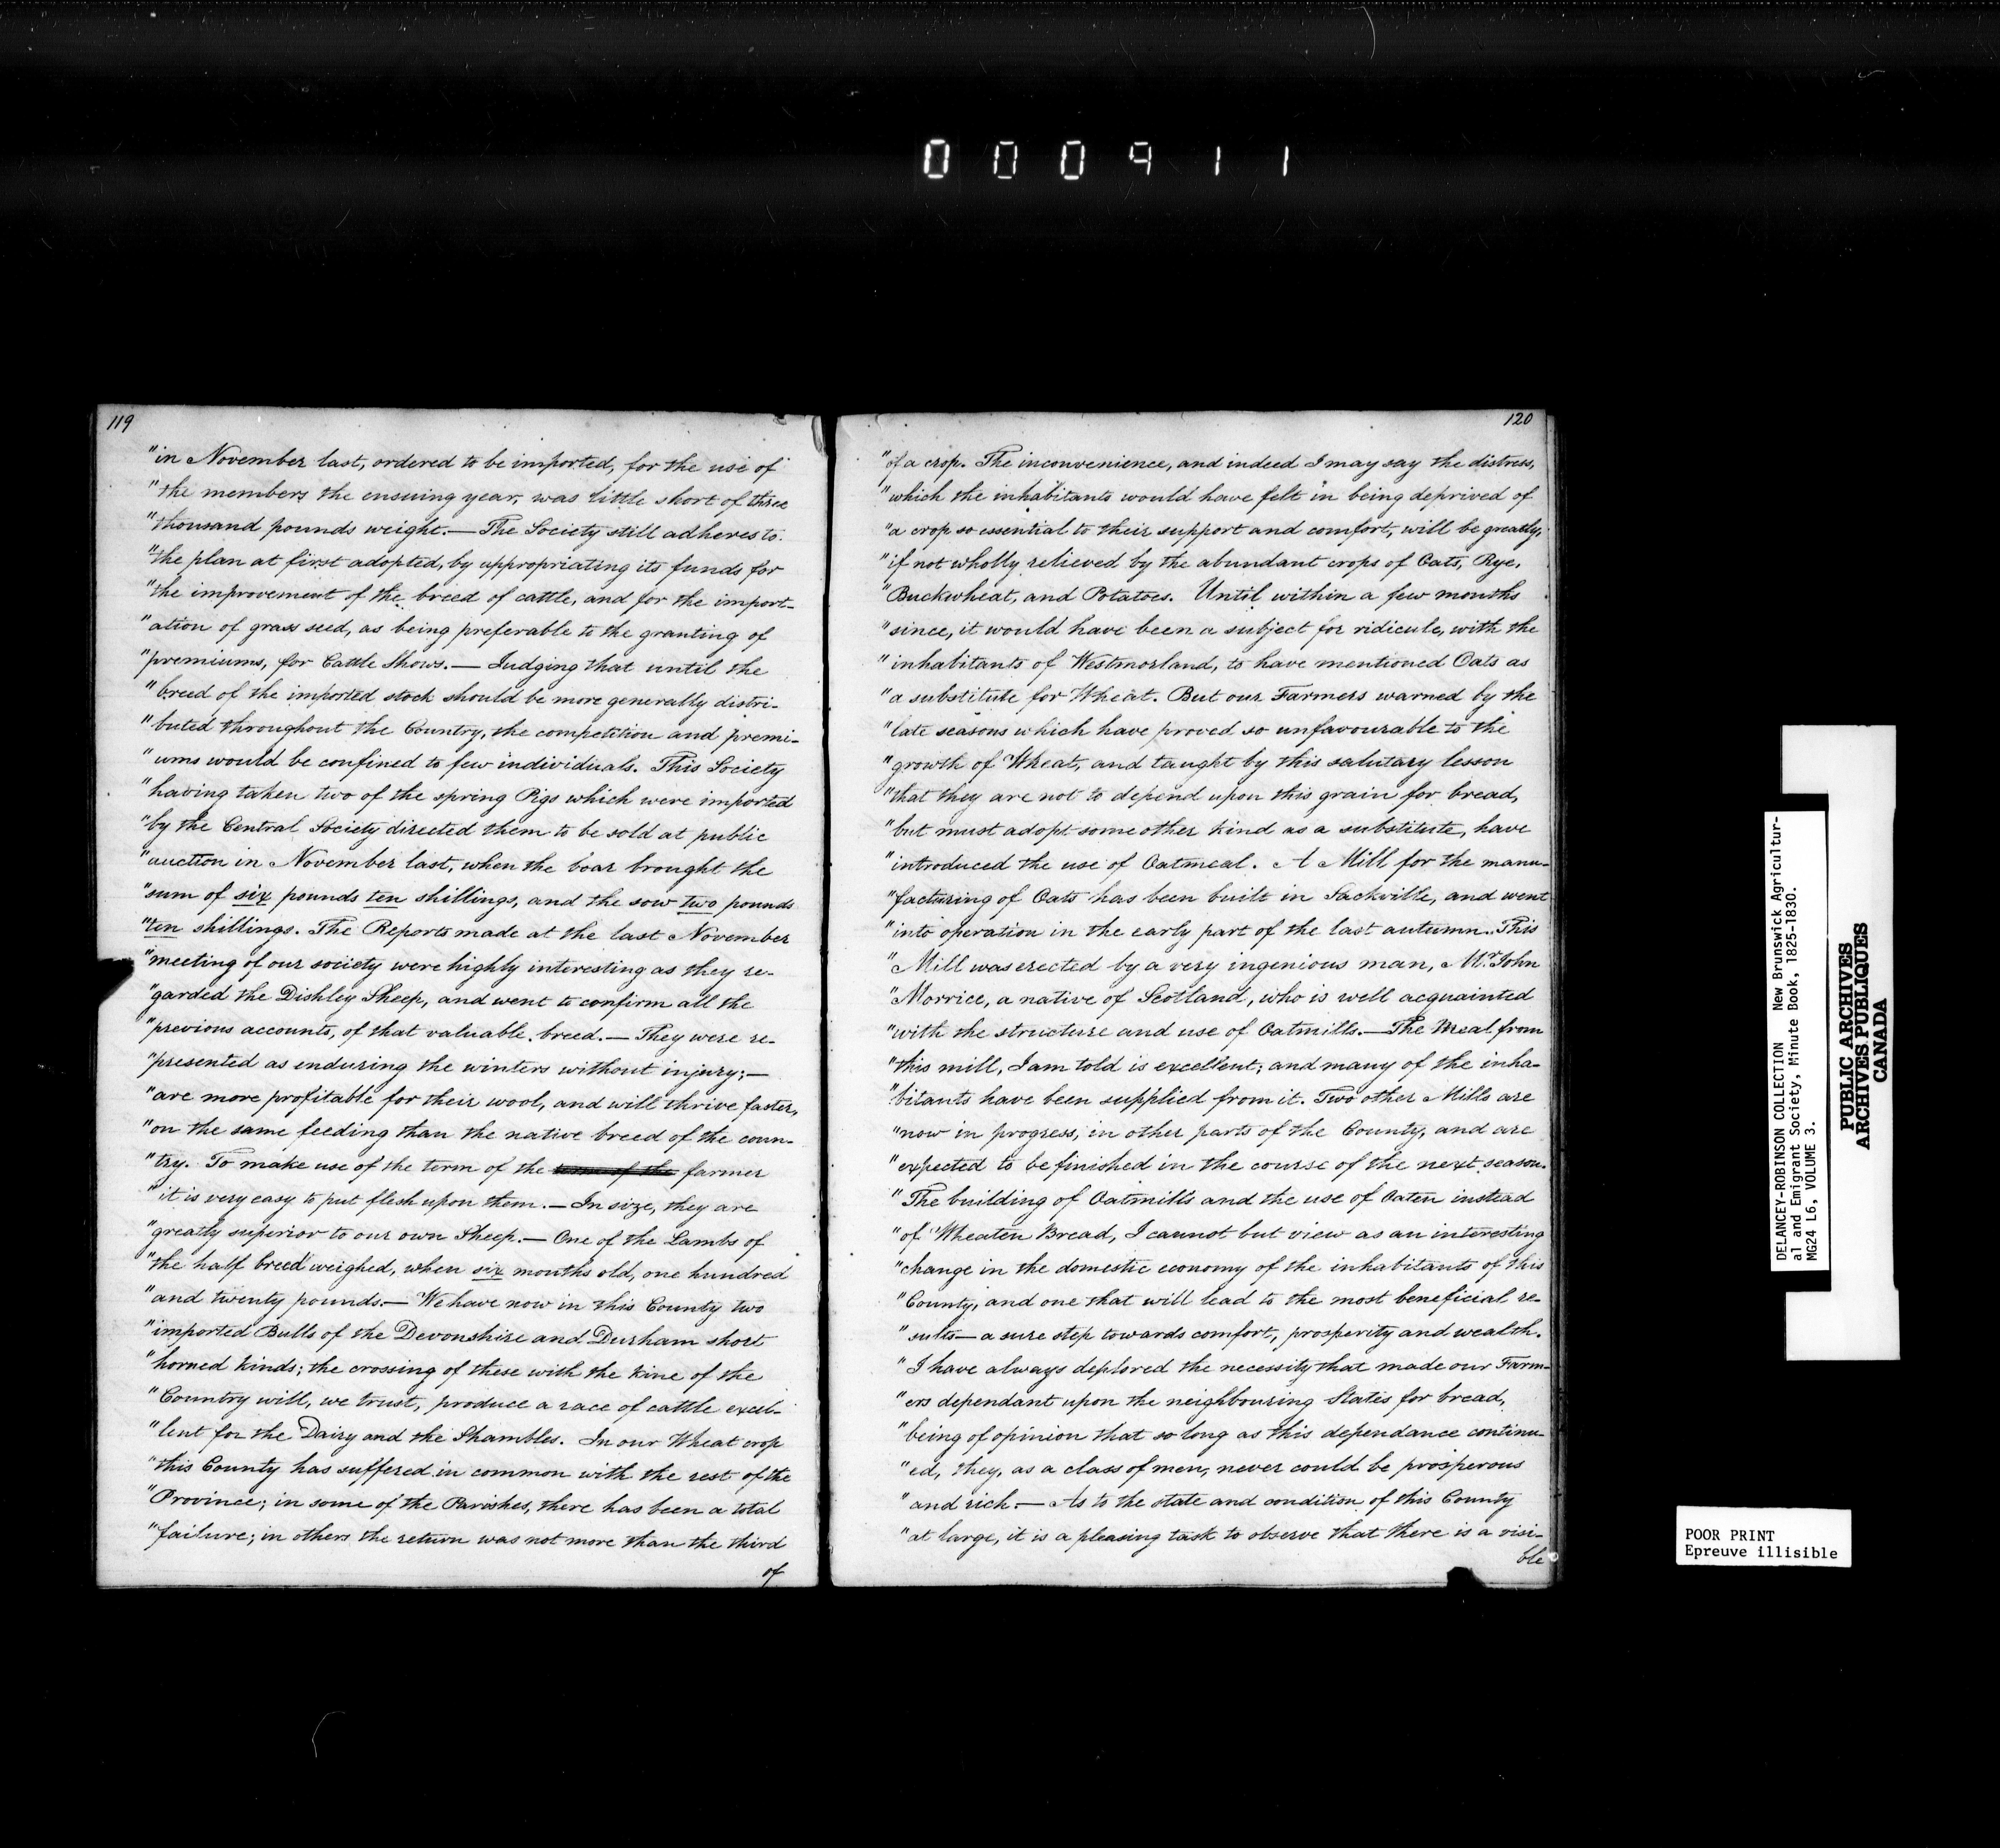 000911
119
"in November last, ordered to be imported, for the use of
"the members the ensuing year, was little short of three
"thousand pounds weight.— The Society still adheres to
"the plan at first adopted, by appropriating its funds for
"the improvement of the breed of cattle, and for the import-
"ation of grass seed, as being preferable to the granting of
"premiums, for Cattle Shows.— Judging that until the
"breed of the imported stock should be more generally distri-
"buted throughout the Country, the competition and premi-
"ums would be confined to few individuals. This Society
"having taken two of the spring Pigs which were imported
"by the Central Society directed them to be sold at public
"auction in November last, when the boar brought the
"sum of six pounds ten shillings, and the sow two pounds
"ten shillings. The Reports made at the last November
"meeting of our society were highly interesting as they re-
"garded the Dishley Sheep, and went to confirm all the
"previous accounts, of that valuable breed.— They were re-
"presented as enduring the winters without injury;—
"are more profitable for their wool, and will thrive faster,
"on the same feeding than the native breed of the coun-
"try. To make use of the term of the term of the farmer
"it is very easy to put flesh upon them.— In size, they are
"greatly superior to our own Sheep.— One of the Lambs of
"the half breed weighed, when six months old, one hundred
"and twenty pounds.— We have now in this County two
"imported Bulls of the Devonshire and Durham short
"horned kinds; the crossing of these with the kine of the
"Country will, we trust, produce a race of cattle excel-
"lent for the Dairy and the Shambles. In our Wheat crop
"this County has suffered in common with the rest of the
"Province; in some of the Parishes, there has been a total
"failure; in others the return was not more than the third
of
120
"of a crop. The inconvenience, and indeed I may say the distress,
"which the inhabitants would have felt in being deprived of
"a crop so essential to their support and comfort, will be greatly,
"if not wholly relieved by the abundant crops of Oats, Rye,
"Buckwheat, and Potatoes. Until within a few months
"since, it would have been a subject for ridicule, with the
"inhabitants of Westmorland, to have mentioned Oats as
"a substitute for Wheat. But our Farmers warned by the
"late seasons which have proved so unfavourable to the
"growth of Wheat, and taught by this salutary lesson
"that they are not to depend upon this grain for bread,
"but must adopt some other kind as a substitute, have
"introduced the use of Oatmeal. A Mill for the manu-
"facturing of Oats has been built in Sackville, and went
"into operation in the early part of the last autumn. This
"Mill was erected by a very ingenious man, Mr. John
"Morrice, a native of Scotland, who is well acquainted
"with the structure and use of Oatmills.— The Meal from
"this mill, I am told is excellent; and many of the inha-
"bitants have been supplied from it. Two other Mills are
"now in progress, in other parts of the County, and are
"expected to be finished in the course of the next season.
"The building of Oatmills and the use of Oaten instead
"of Wheaten Bread, I cannot but view as an interesting
"change in the domestic economy of the inhabitants of this
"County, and one that will lead to the most beneficial re-
"sults— a sure step towards comfort, prosperity and wealth.
"I have always deplored the necessity that made our Farm-
"ers dependant upon the neighbouring States for bread,
"being of opinion that so long as this dependance continu-
"ed, they, as a class of men, never could be prosperous
"and rich.— As to the state and condition of this County
"at large, it is a pleasing task to observe that there is a visi-
ble
DELANCEY-ROBINSON COLLECTION New Brunswick Agricultur-
al and Emigrant Society, Minute Book, 1825-1830.
MG24 L6, VOLUME 3.
PUBLIC ARCHIVES
ARCHIVES PUBLIQUES
CANADA
POOR PRINT
Epreuve illisible